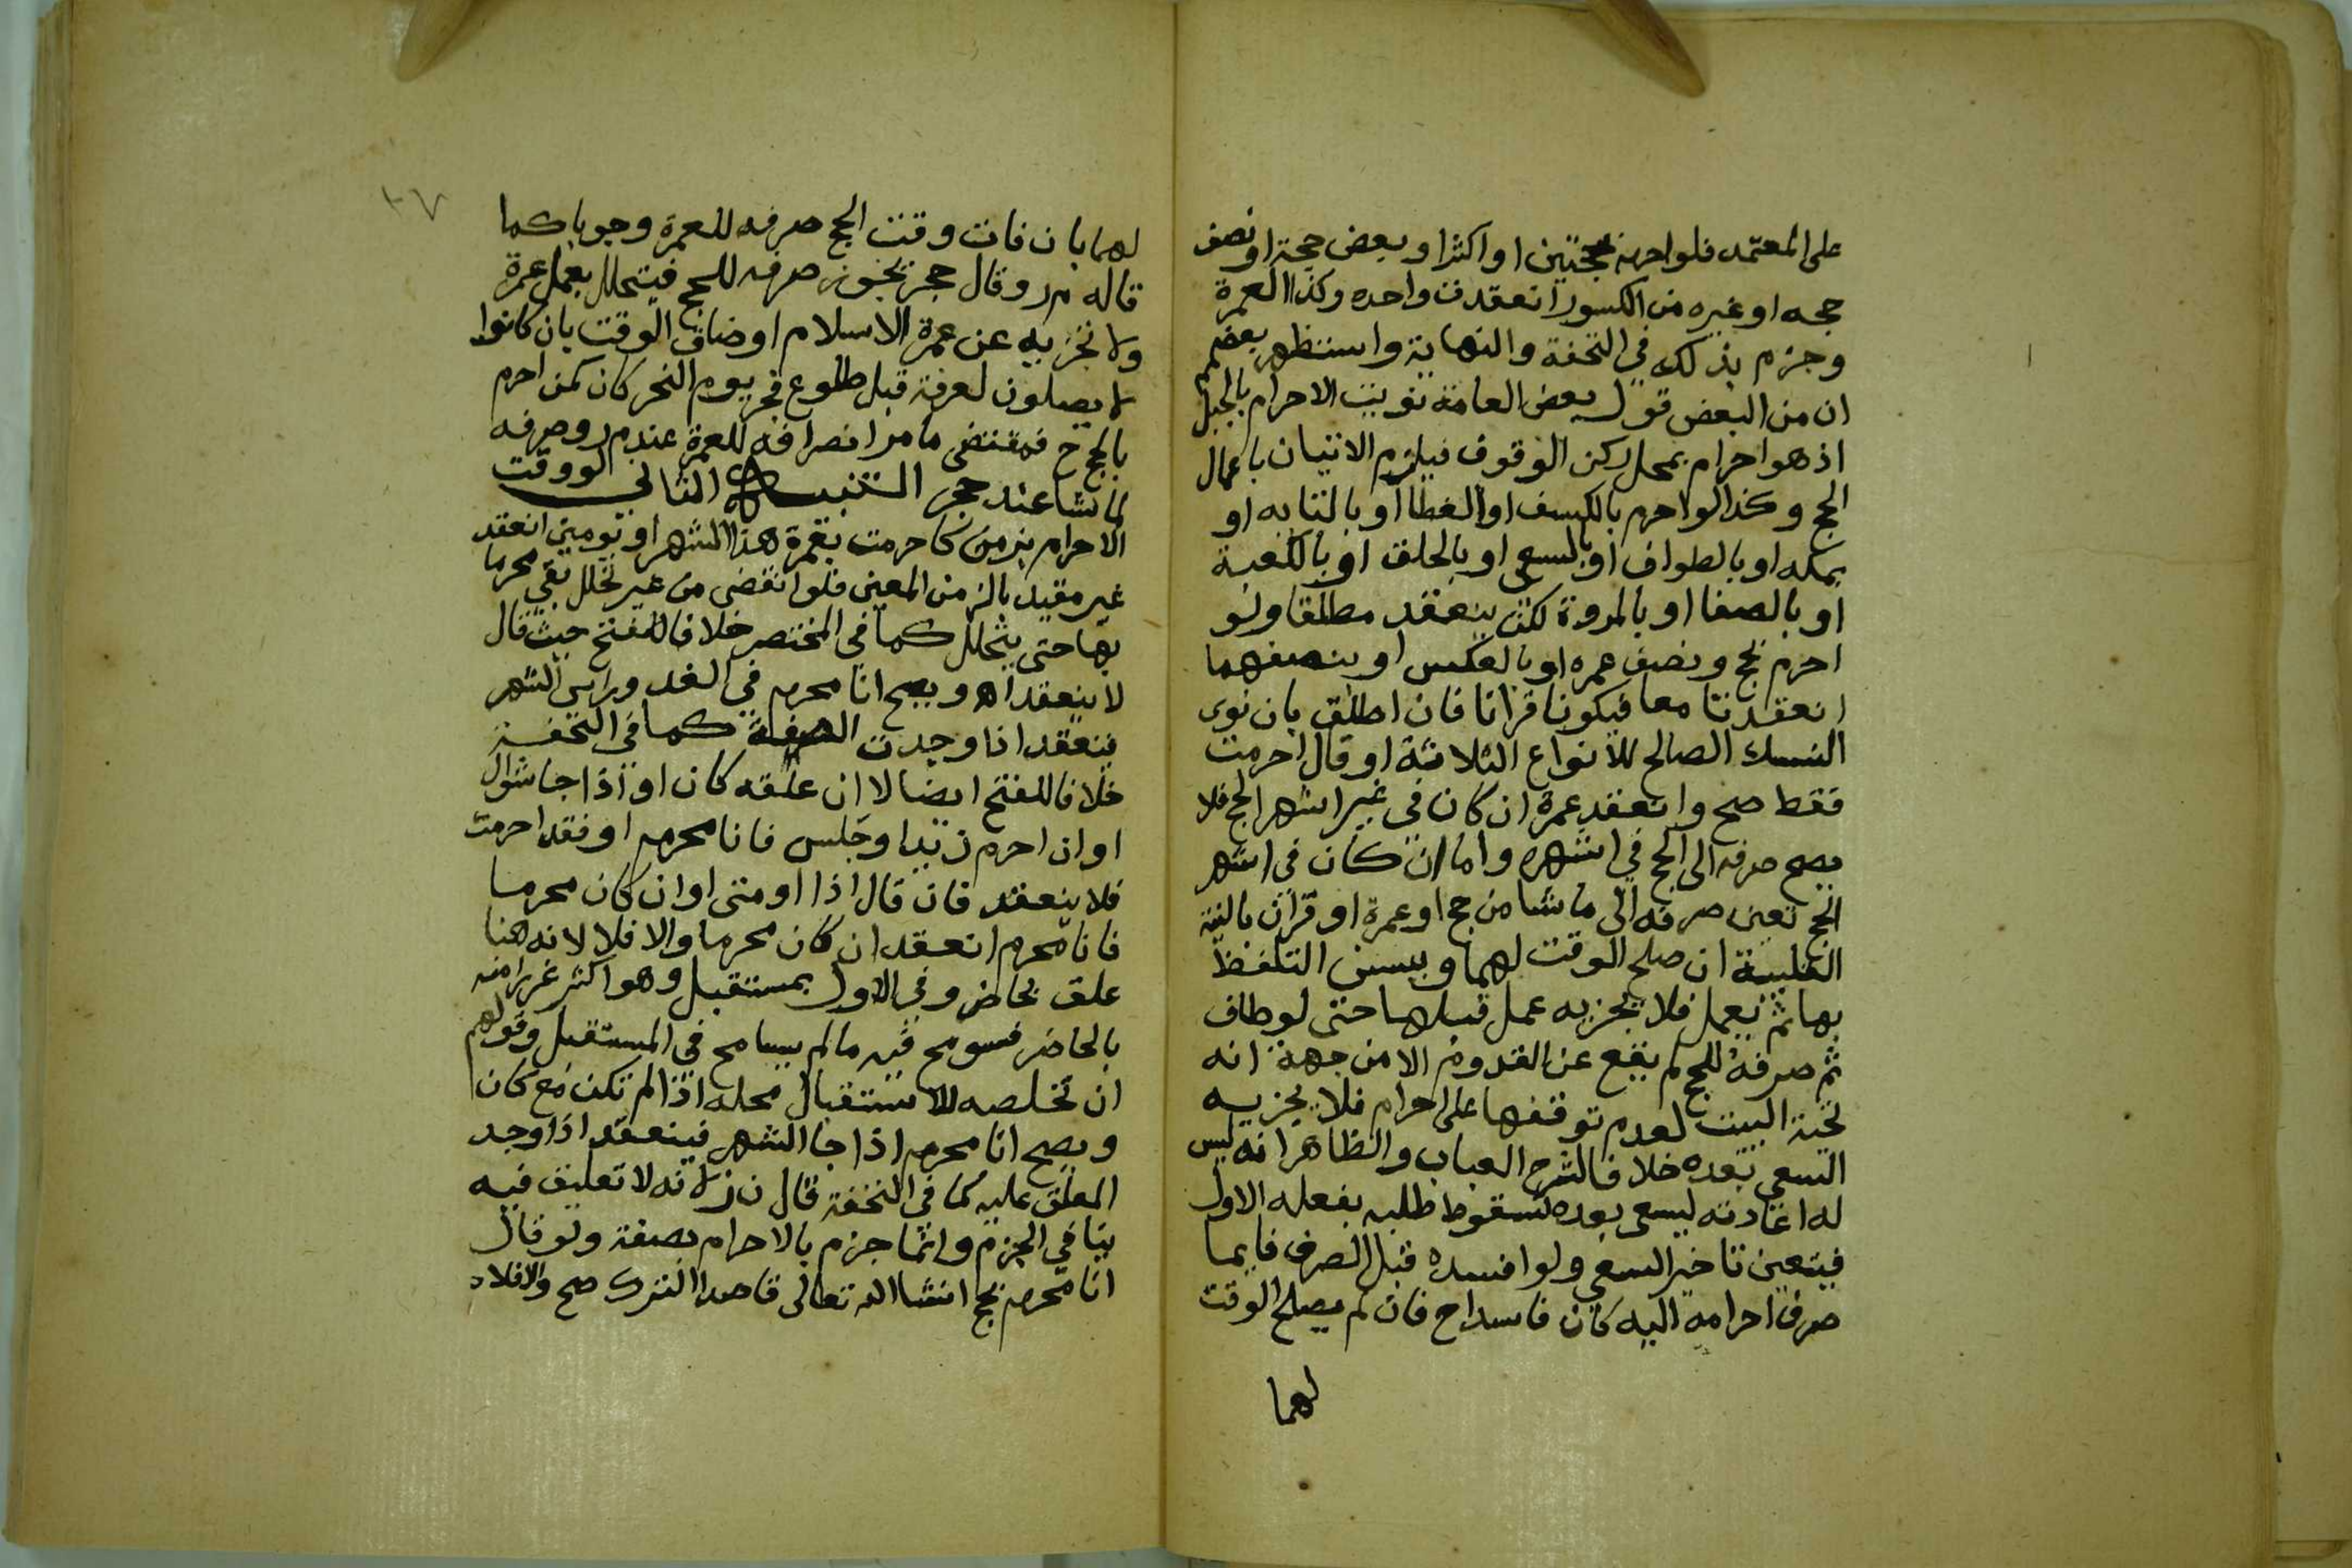 على المعتمد فلو احرم بحجتين او اكثر او بعض حجة او نصف
حجه او غيره من الكسور انعقدت واحده وكذا العمرة
وجزم بذلك في التحفة والنهاية واستظهر بعضهم
ان من البعض قول بعض العامة نويت الاحرام بالجبل
اذ هو احرام بمحل ركن الوقوف فيلزم الاتيان باعمال
الحج وكذا لو احرم بالكسف او الغطا او بالنيابه او
بمكه او بالطواف او بالسعي او بالحلق او بالكعبة
او بالصفا او بالمروة لكن ينعقد مطلقا ولو
احرم بحج ونصف عمره او بالعكس او بنصفهما
انعقدتا معا فيكونا قرانا فان اطلق بان نوى
النسك الصالح للانواع الثلاثة او قال احرمت
فقط صح وانعقد عمرة ان كان في غير اشهر الحج فلا
يصح صرفه الى الحج في اشهره واما ان كان في اشهر
الحج تعين صرفه الى ما شا من حج او عمرة او قران بالنية
القلبية ان صلح الوقت لهما ويسن التلفظ
بها ثم يعمل فلا يجزيه عمل قبلها حتى لو طاف
ثم صرفه للحج لم يقع عن القدوم الا من جهة انه
تحية البيت لعدم توقفها على احرام فلا يجزيه
السعي بعده خلافا لشرح العباب والظاهر انه ليس
له اعادته ليسعى بعده لسقوط طلبه بفعله الاول
فيتعين تاخير السعي ولو افسده قبل الصرف فايما
صرف احرامه اليه كان فاسدا ح فان لم يصلح الوقت
لهما
٣٧
لهما بان فات وقت الحج صرفه للعمرة وجوبا كما
قاله م ر وقال حجر يجوز صرفه للحج فيتحلل بعمل عمرة
ولا تجزيه عن عمرة الاسلام او ضاق الوقت بان كانوا
لا يصلون لعرفة قبل طلوع فجر يوم النحر كان كمن احرم
بالحج ح فمقتضى ما مر انصرافه للعمرة عند م ر وصرفه
لما شا عند حجر التنبيه الثاني لو وقت
الاحرام بزمن كاحرمت بعمرة هذا الشهر او يومين انعقد
غير مقيد بالزمن المعين فلو انقضى من غير تحلل بقي محرما
بها حتى يتحلل كما في المختصر خلافا للفتح حيث قال
لا ينعقد اه ويصح انا محرم في الغد وراس الشهر
فينعقد اذا وجدت الصفة كما في التحفة
خلافا للفتح ايضا لا ان علقه كان او اذا جا شوال
او ان احرم زيد او جلس فانا محرم او فقد احرمت
فلا ينعقد فان قال اذا او متى او ان كان محرما
فانا محرم انعقد ان كان محرما والا فلا لانه هنا
علق بحاضر وفي الاول بمستقبل وهو اكثر غررا منه
بالحاضر فسومح فيه ما لم يسامح في المستقبل وقولهم
ان تخلصه للاستقبال محله اذا لم تكن مع كان
ويصح انا محرم اذا جا الشهر فينعقد اذا وجد
المعلق عليه كما في التحفة قال ن ز لانه لا تعليق فيه
ينافي الجزم وانما جزم بالاحرام بصفة ولو قال
انا محرم بحج ان شا الله تعالى قاصدا التبرك صح والا فلا